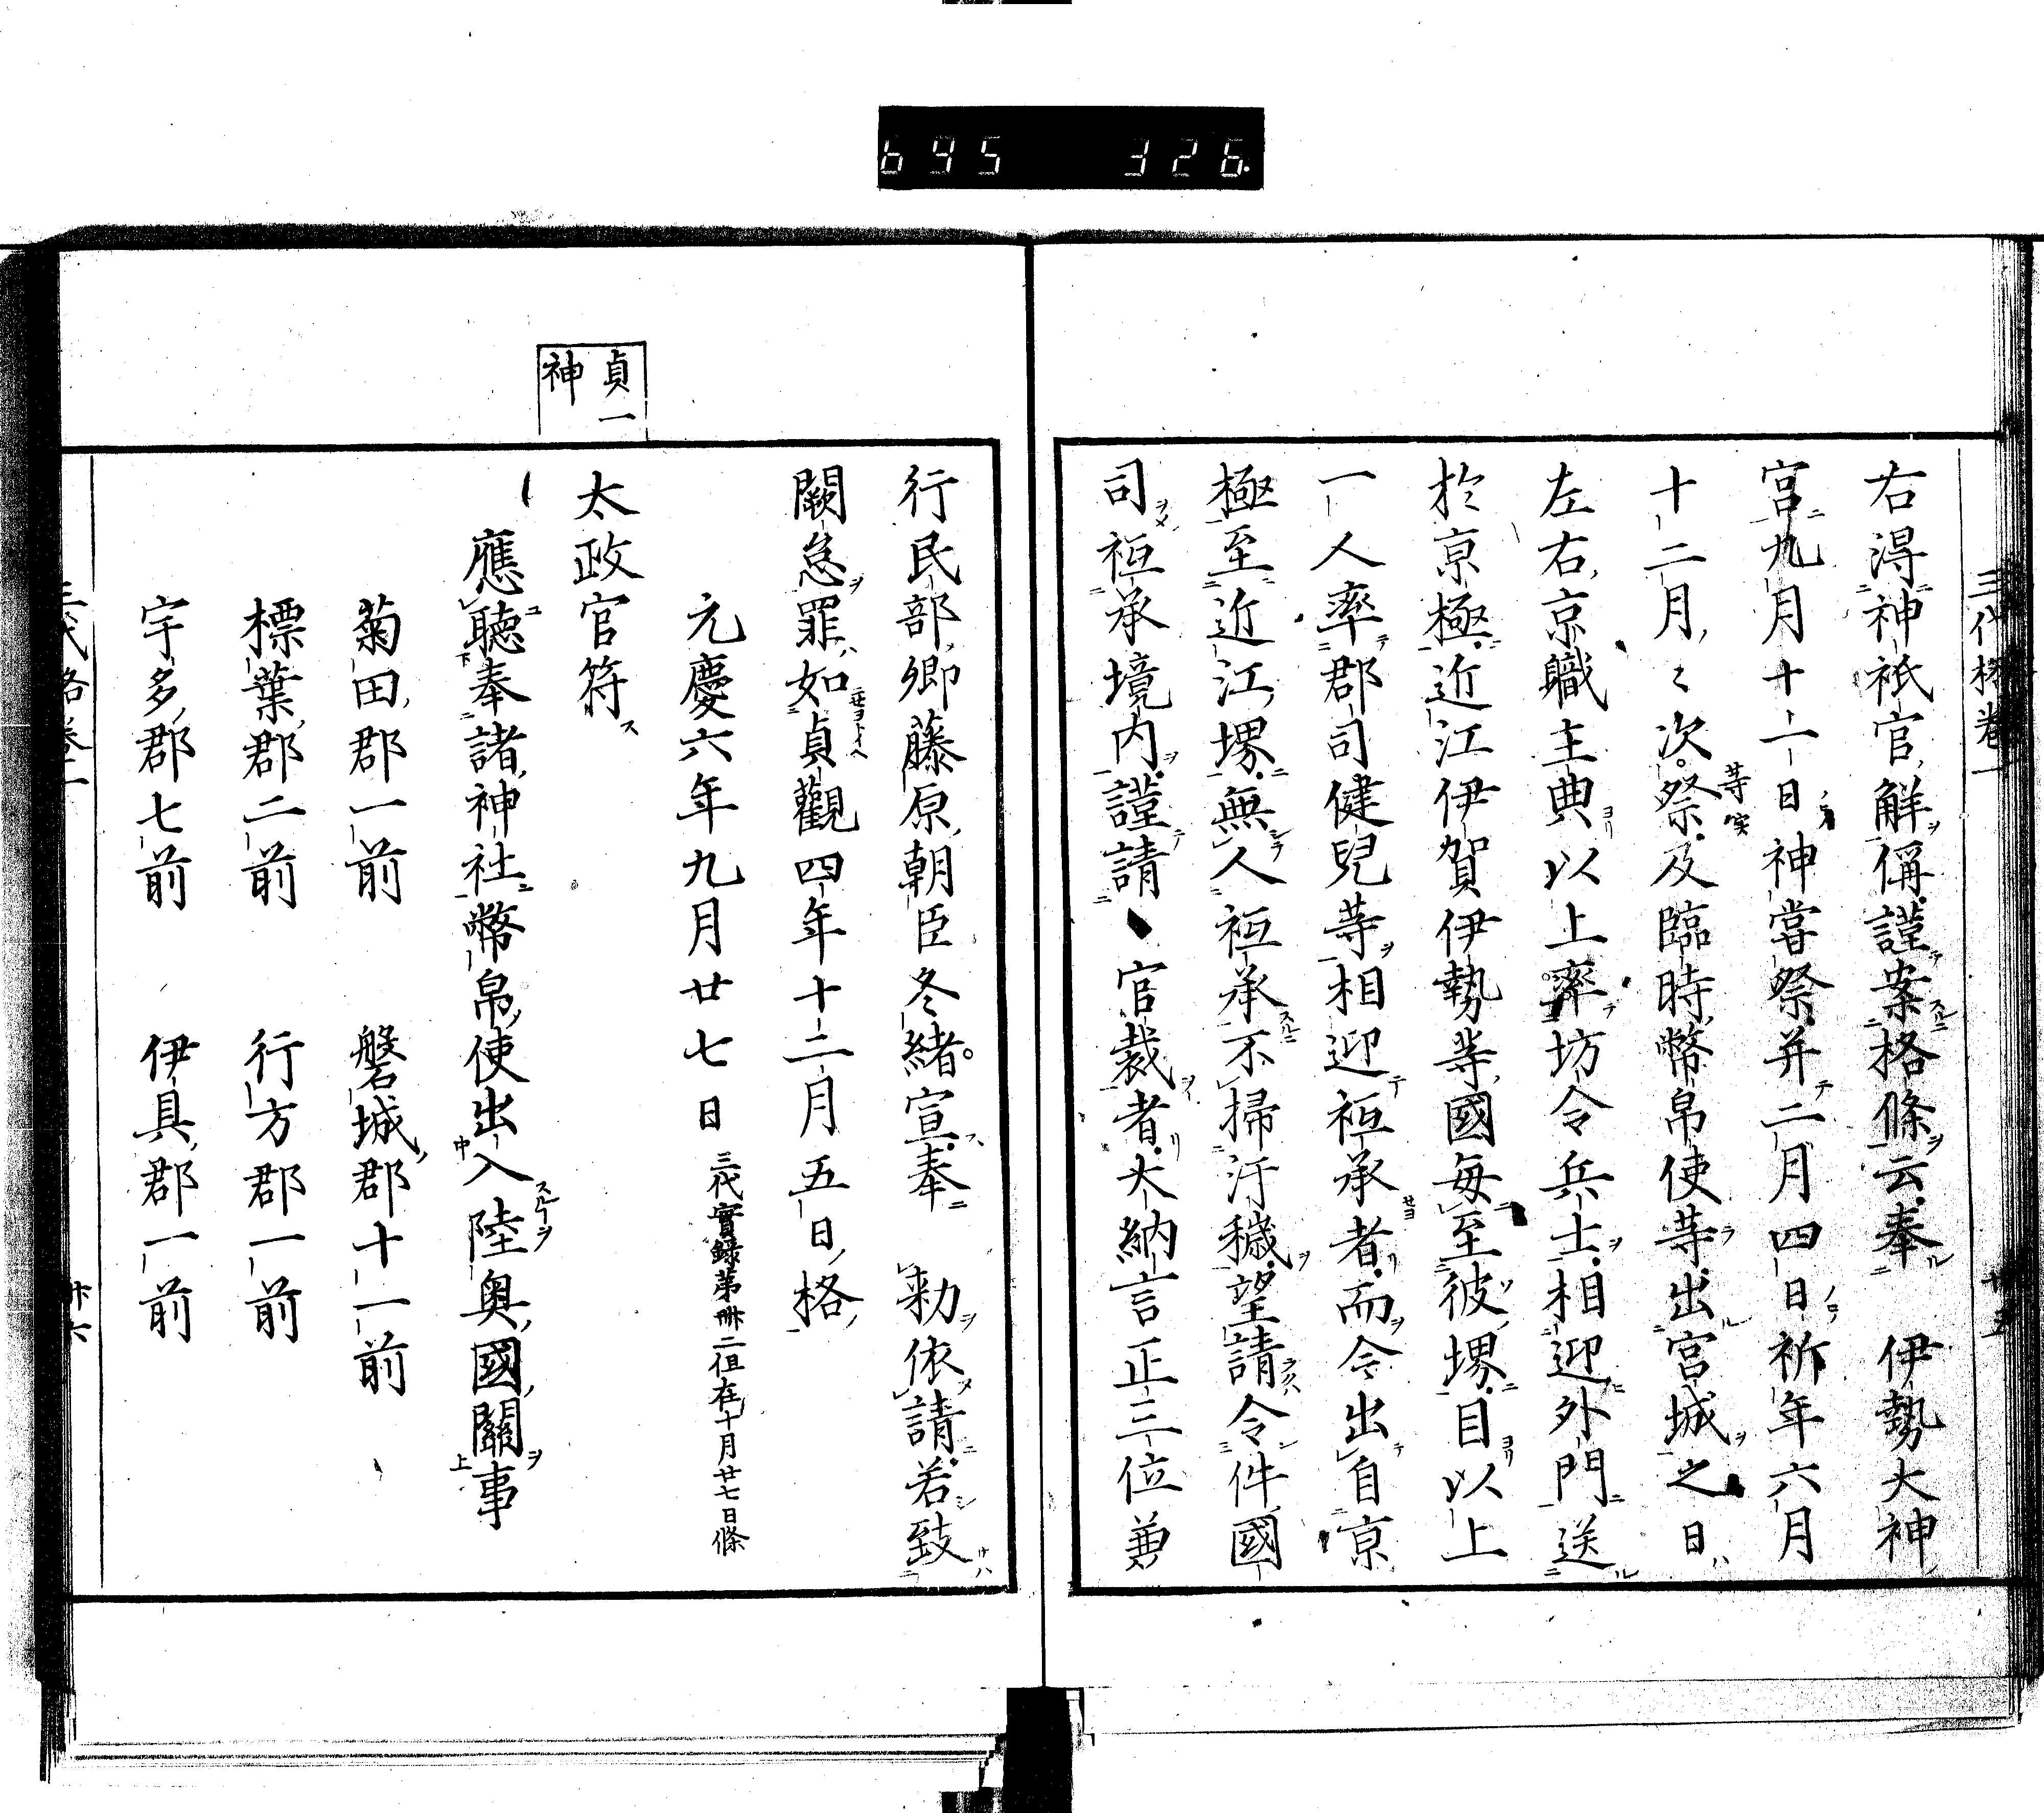 695 326
三代格卷一
廿五
右得神祇官解偁謹案格條云奉 伊勢大神
宮九月十一日神嘗祭并二月四日祈年六月
十二月〻次祭及臨時幣帛使等出宮城之日
左右京職主典以上率坊令兵士相迎外門送
於京極近江伊賀伊勢等國毎至彼堺目以上
一人率郡司健兒等相迎祗承者而令出自京
極至近江堺無人祗承不掃汙穢望請令件國
司祗承境内謹請 官裁者大納言正三位兼
行民部卿藤原朝臣冬緒宣奉 勅依請若致
闕怠罪如貞觀四年十二月五日格
元慶六年九月廿七日 三代實録第卌二徂在十月廿七日條
貞一
神
太政官符
應聽奉諸神社幣帛使出入陸奥國關事
菊田郡一前 磐城郡十一前
標葉郡二前 行方郡一前
宇多郡七前 伊具郡一前
三代格卷一
廿六